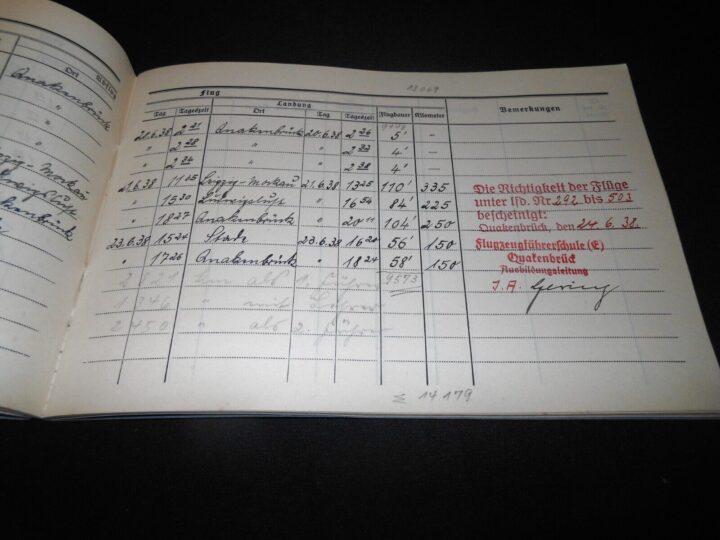 Ort
Quakenbrück
"
"
Leipzig-Mockau
Ludwigslust
Quakenbrück
"
13069
Flug
Landung
Bemerkungen
Tag Tageszeit Ort Tag Tageszeit Flugdauer Kilometer
20.6.38 2 21 Quakenbrück 20.6.38 2 26 5' —
" 2 28 " " 2 33 4' —
" 2 34 " " 2 38 4' —
21.6.38 11 45 Leipzig-Mockau 21.6.38 13 25 110' 335
" 15 30 Ludwigslust " 16 54 84' 225
" 18 27 Quakenbrück " 20 11 104' 250
23.6.38 15 24 Stade 23.6.38 16 20 56' 150
" 17 26 Quakenbrück " 18 24 58' 150
km als 1. Führer 9573
" mit Lehrer
2450 " als 2. Führer
Σ 14 179
Die Richtigkeit der Flüge
unter lfd. Nr. 292 bis 503
bescheinigt:
Quakenbrück, den 24.6.38.
Flugzeugführerschule (E)
Quakenbrück
Ausbildungsleitung
I.A. Gering